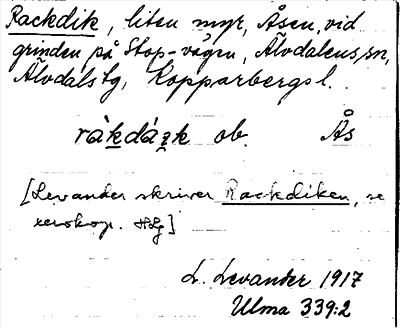 Rackdik, liten myr, Åsen, vid
grinden på Stop-vägen, Älvdalens sn,
Älvdals tg, Kopparbergs l.
ràkdáik ob. Ås
[Levander skriver Rackdiken, se
xeroxkop. HLg]
L. Levander 1917
Ulma 339:2